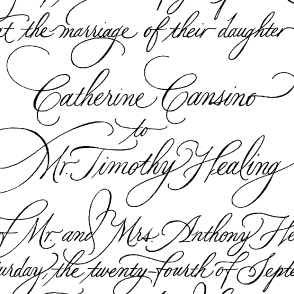 at the marriage of their daughter
Catherine Cansino
to
Mr. Timothy Healing
of Mr. and Mrs. Anthony
the twenty-fourth of